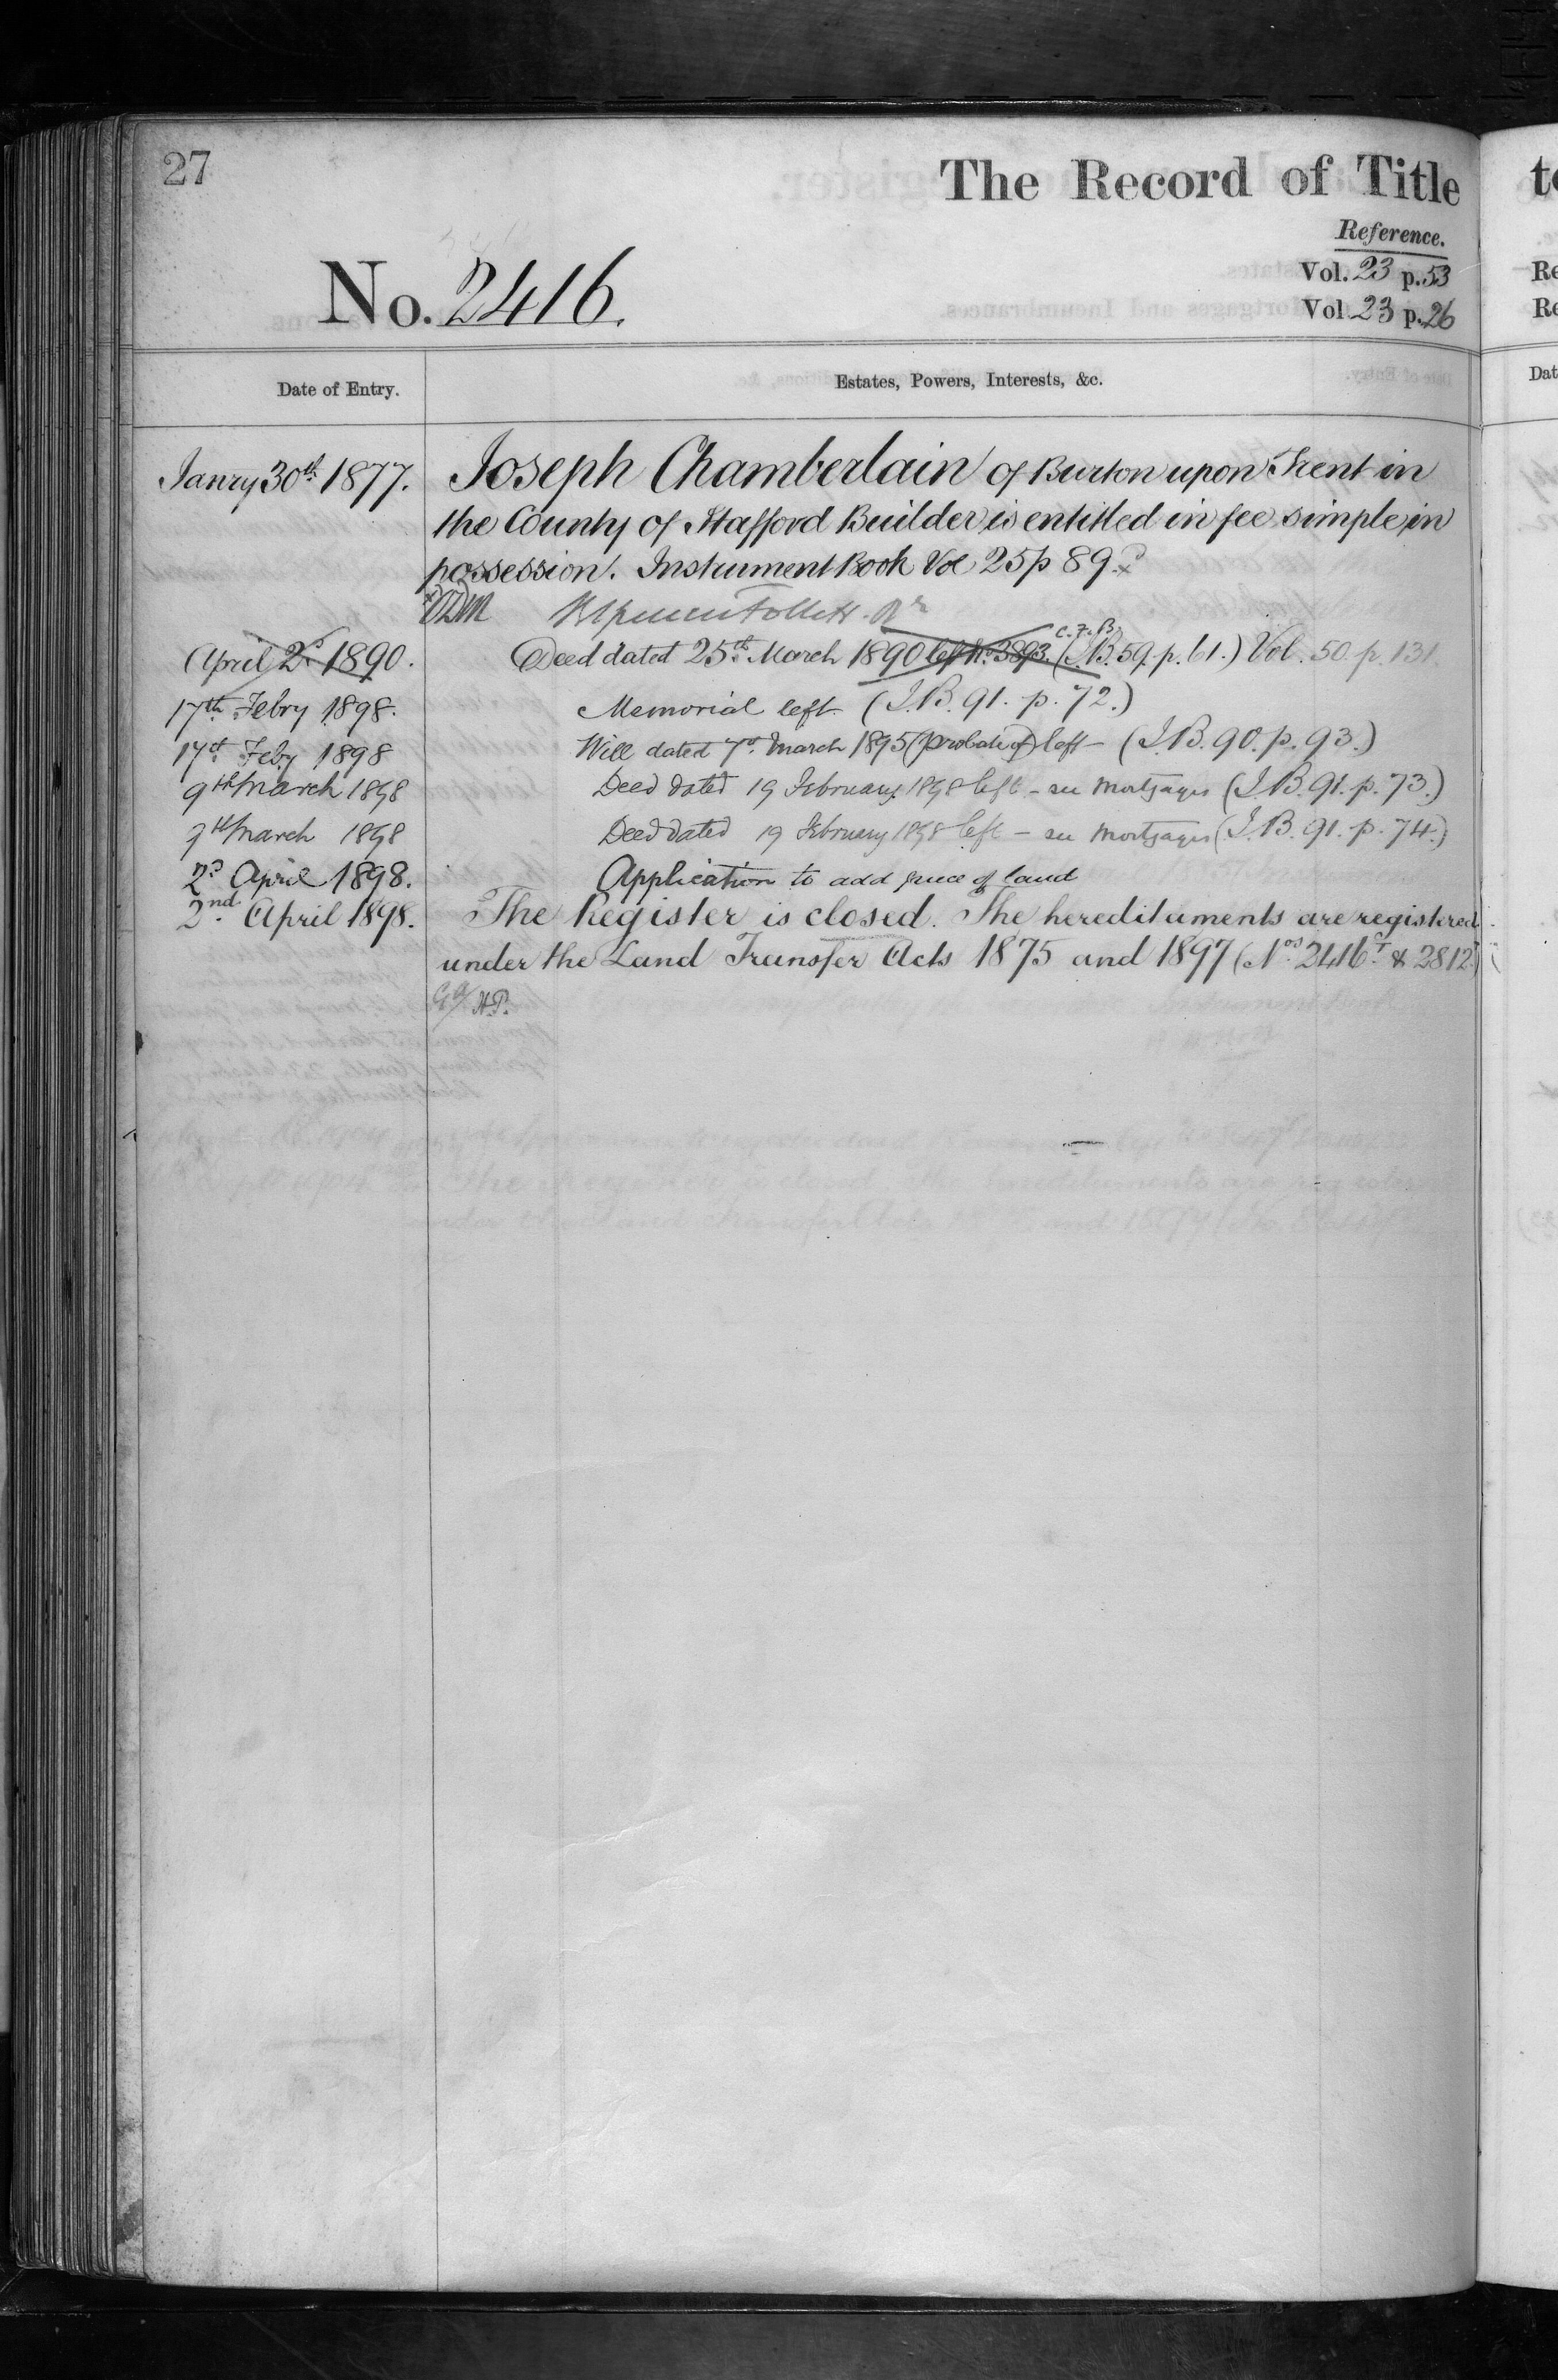 27
The Record of Title
Reference.
No. 2416.
Vol. 23 p. 53
Vol. 23 p. 26
Date of Entry.
Estates, Powers, Interests, &c.
Janry 30th 1877. Joseph Chamberlain of Burton upon Trent in
the County of Stafford Builder is entitled in fee simple in
possession. Instrument Book Vol 25 p 89.
Follett
C.F.B.
April 2d 1890. Deed dated 25th March 1890 left No. 3893. (I.B. 59. p. 61.) Vol. 50. p. 131.
17th Febry 1898. Memorial left. (I.B. 91. p. 72.)
17th Feby 1898 Will dated 7th March 1895 (probate of) left - (I.B. 90. p. 93.)
9th March 1898 Deed dated 19 February 1898 left - see Mortgages (I.B. 91. p. 73.)
9th March 1898 Deed dated 19 February 1898 left - see Mortgages (I.B. 91. p. 74.)
2d April 1898. Application to add piece of land
2nd April 1898. The Register is closed. The hereditaments are registered
under the Land Transfer Acts 1875 and 1897 (Nos 2416 & 2812)
H.P.
to
Re
Re
Dat